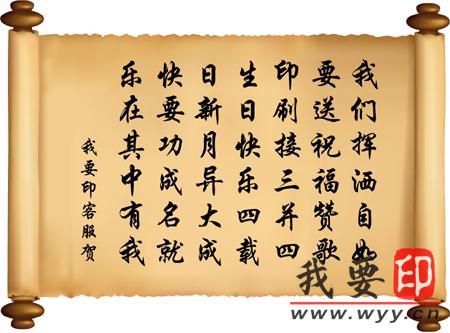 我们挥洒自如
要送祝福赞歌
印刷接三并四
生日快乐四载
日新月异大成
快要功成名就
乐在其中有我
我要印客服贺
我要印
www.wyy.cn